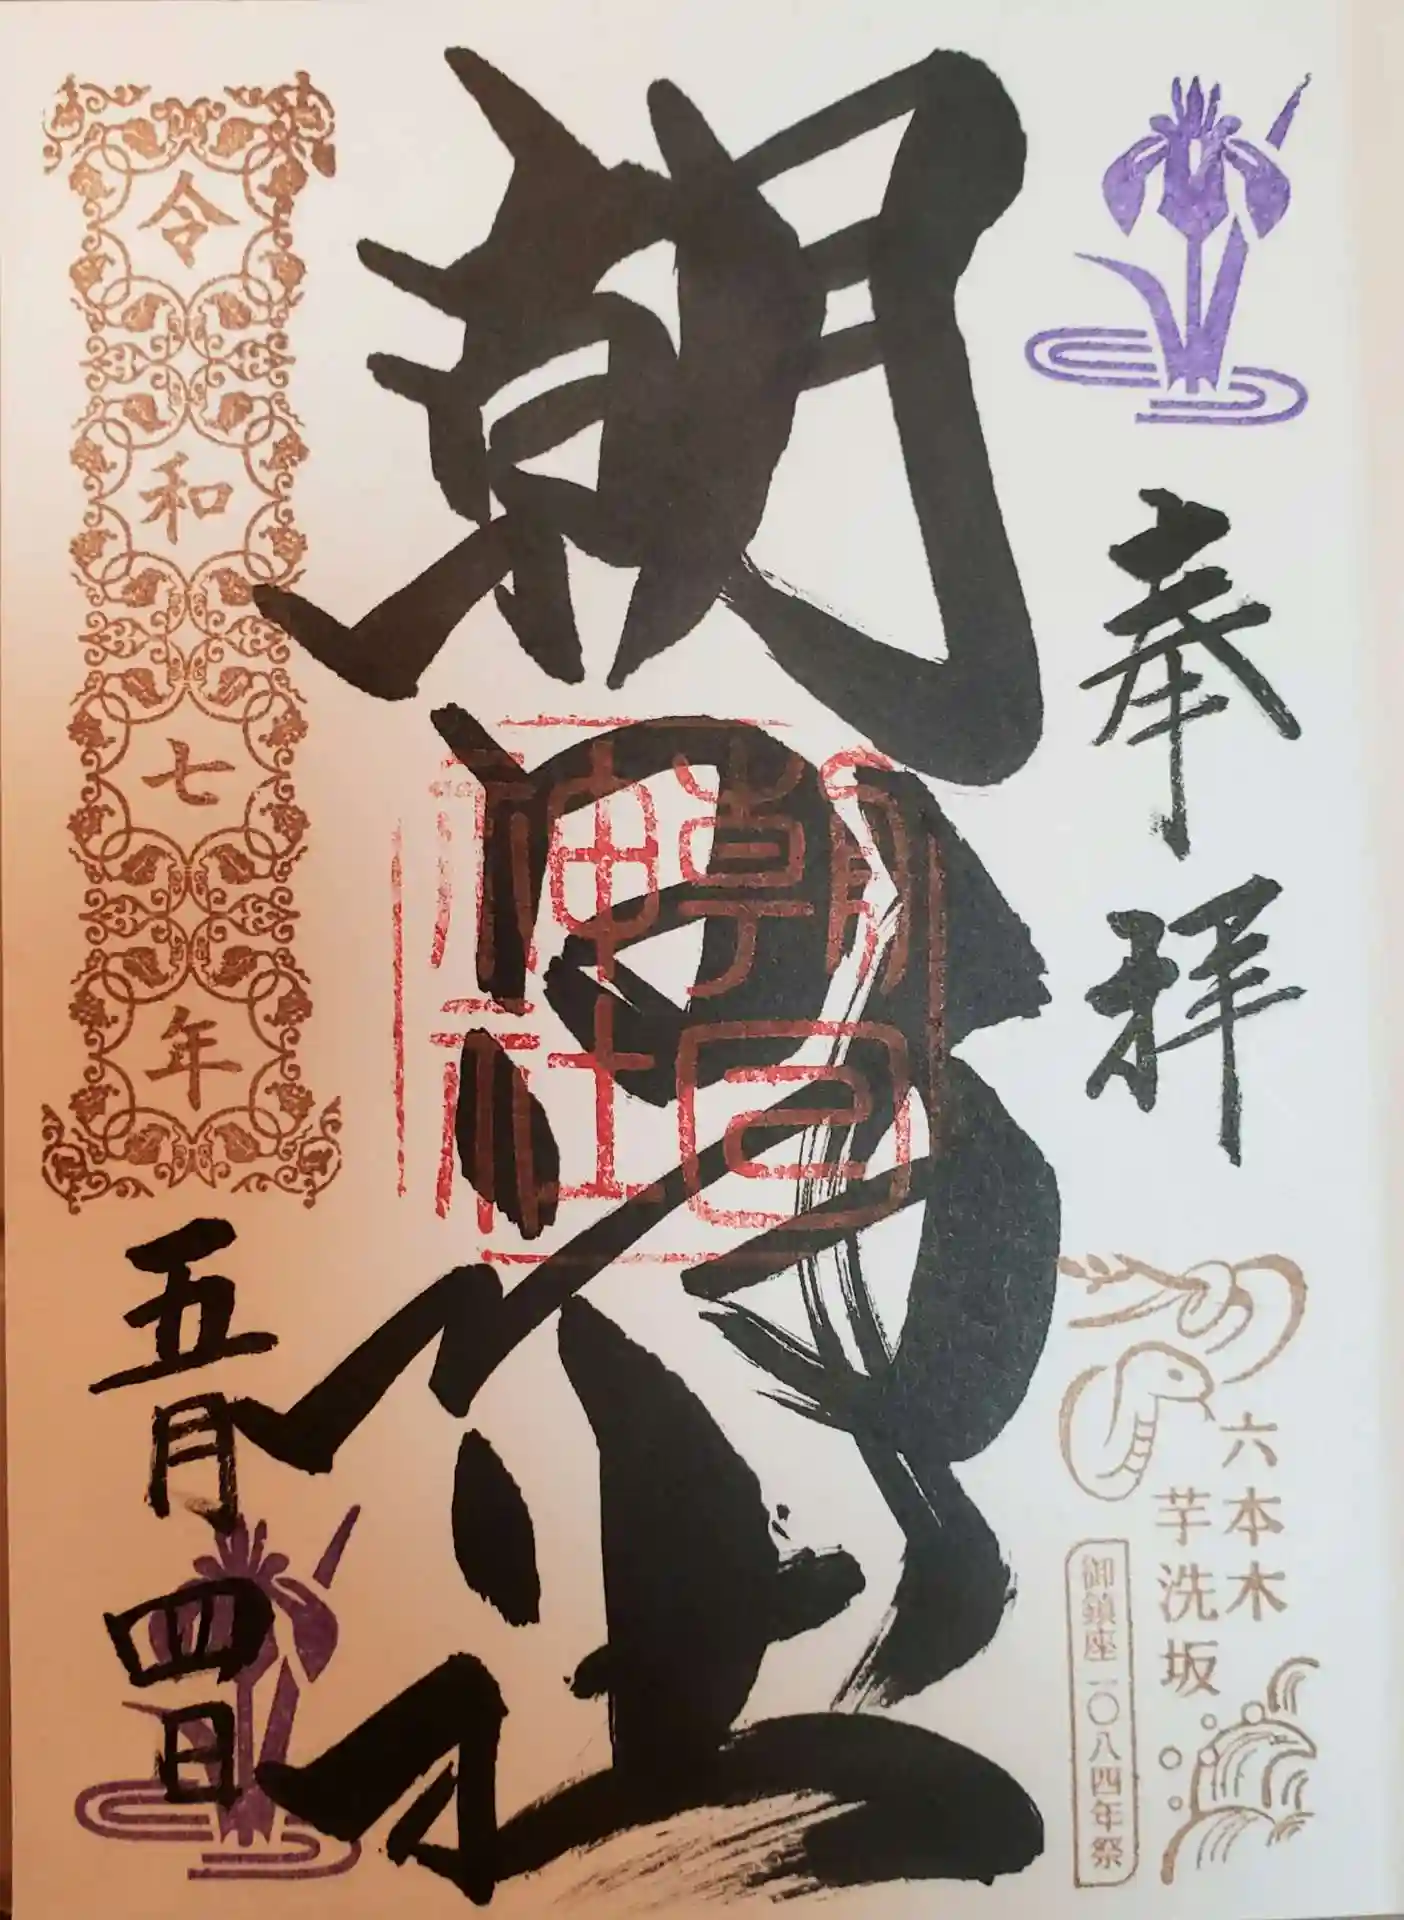 奉拝
六本木
芋洗坂
御鎮座一〇八四年祭
朝日神社
朝日神社
令和七年
五月四日